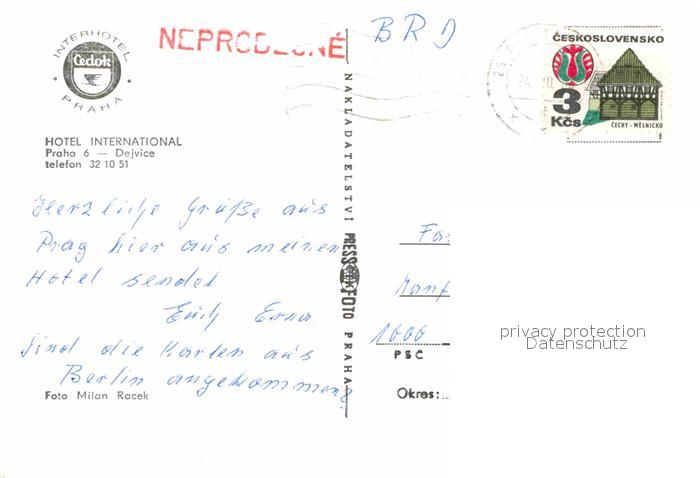 INTERHOTEL
Čedok
PRAHA
HOTEL INTERNATIONAL
Praha 6 — Dejvice
telefon 32 10 51
NEPRODEJNÉ
BRD
ČESKOSLOVENSKO
3
Kčs
ČECHY - MĚLNICKO
Herzliche Grüße aus
Prag hier aus meinen
Hotel sendet
Euch Erna.
Sind die Karten aus
Berlin angekommen?
Foto Milan Racek
NAKLADATELSTVÍ PRESSFOTO PRAHA
1000
PSČ
Okres:
privacy protection
Datenschutz